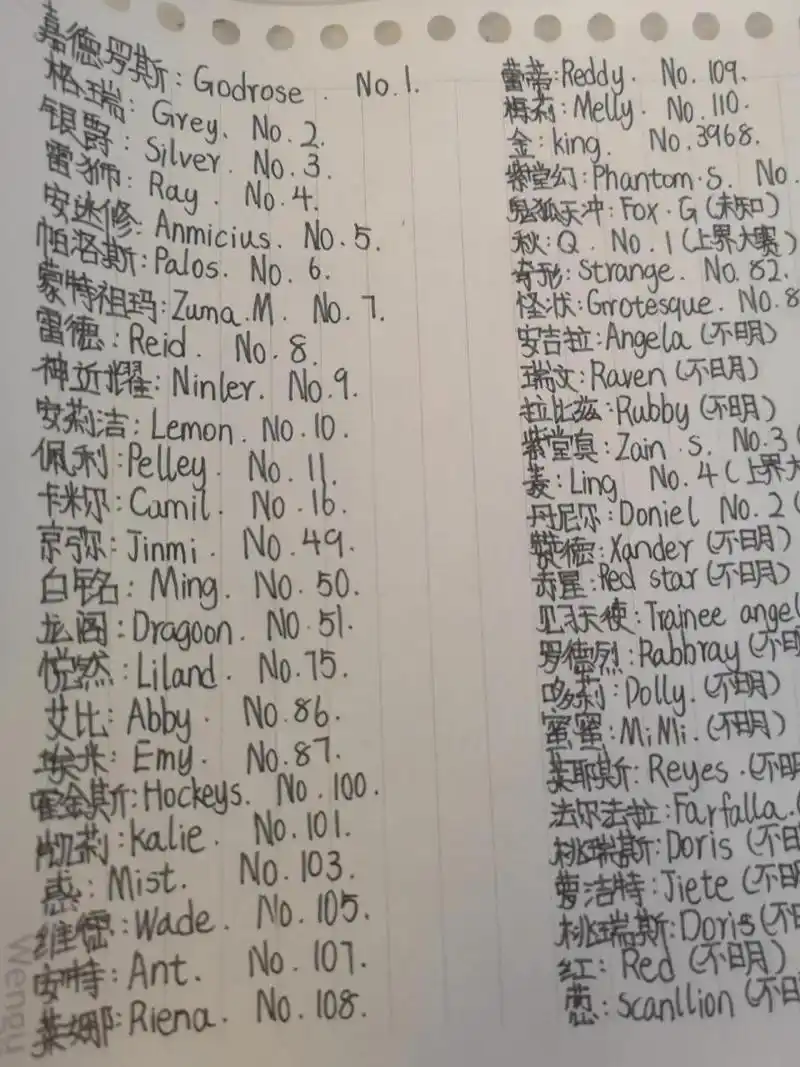 嘉德罗斯：Godrose. No.1.
格瑞：Grey. No.2.
银爵：Silver. No.3.
雷狮：Ray. No.4.
安迷修：Anmicius. No.5.
帕洛斯：Palos. No.6.
蒙特祖玛：Zuma.M. No.7.
雷德：Reid. No.8.
神近耀：Ninler. No.9.
安莉洁：Lemon. No.10.
佩利：Pelley. No.11.
卡米尔：Camil. No.16.
京弥：Jinmi. No.49.
白铭：Ming. No.50.
龙阁：Dragoon. No.51.
悦然：Liland. No.75.
艾比：Abby. No.86.
埃米：Emy. No.87.
霍金斯：Hockeys. No.100.
凯莉：Kalie. No.101.
惑：Mist. No.103.
维德：Wade. No.105.
安特：Ant. No.107.
莱娜：Riena. No.108.
蕾蒂：Reddy. No.109.
梅莉：Melly. No.110.
金：king. No.3968.
紫堂幻：Phantom.S. No.
鬼狐天冲：Fox.G(未知)
秋：Q. No.1(上界大赛)
奇形：Strange. No.82.
怪状：Grotesque. No.8
安吉拉：Angela(不明)
瑞文：Raven(不明)
拉比兹：Rubby(不明)
紫堂真：Zain.s. No.3(
菱：Ling No.4(上界大
丹尼尔：Doniel No.2(
赞德：Xander(不明)
赤星：Red star(不明)
见习天使：Trainee angel(
罗德烈：Rabbray(不明
哆莉：Dolly.(不明)
蜜蜜：MiMi.(不明)
莱耶斯：Reyes.(不明
法尔法拉：Farfalla.(
桃瑞斯：Doris(不明
萝洁特：Jiete(不明
桃瑞斯：Doris(不明
红：Red(不明)
葱：Scanllion(不明
Wengu